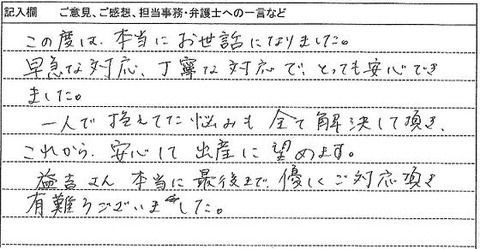 記入欄 ご意見、ご感想、担当事務・弁護士への一言など
この度は、本当にお世話になりました。
早急な対応、丁寧な対応で、とっても安心でき
ました。
一人で抱えてた悩みも全て解決して頂き、
これから、安心して出産に望めます。
益吉さん 本当に最後まで、優しくご対応頂き
有難うございました。